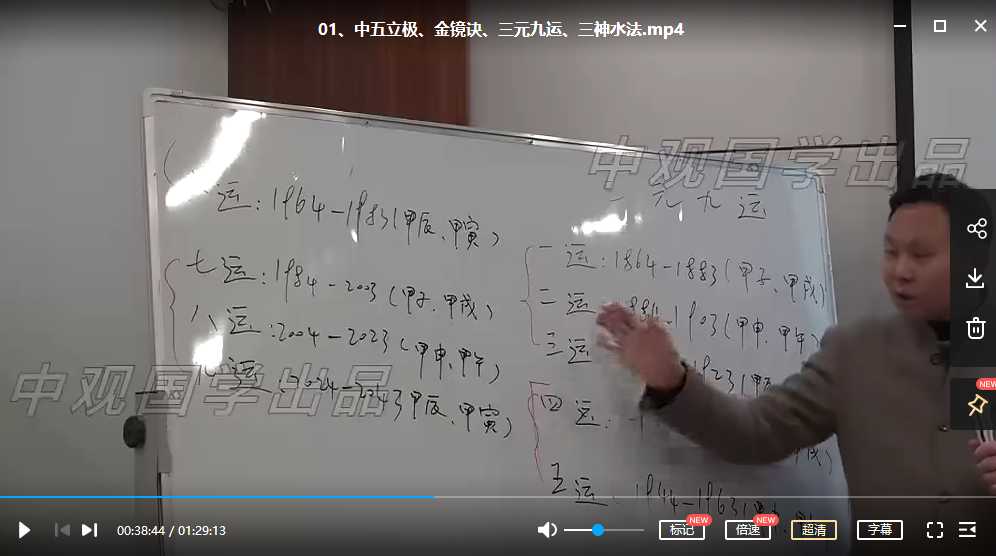 01、中五立极、金镜诀、三元九运、三神水法.mp4
中观国学出品
元九运
运:1964-1983(甲辰、甲寅)
七运:1984-2003(甲子、甲戌)
八运:2004-2023(甲申、甲午)
九运:2024-2043甲辰、甲寅)
一运:1864-1883(甲子、甲戌)
二运 1884-1903(甲申、甲午)
三运
四运:
五运:1944-1963(甲
中观国学出品
NEW
NEW
NEW
00:38:44 / 01:29:13
标记
倍速
超清
字幕